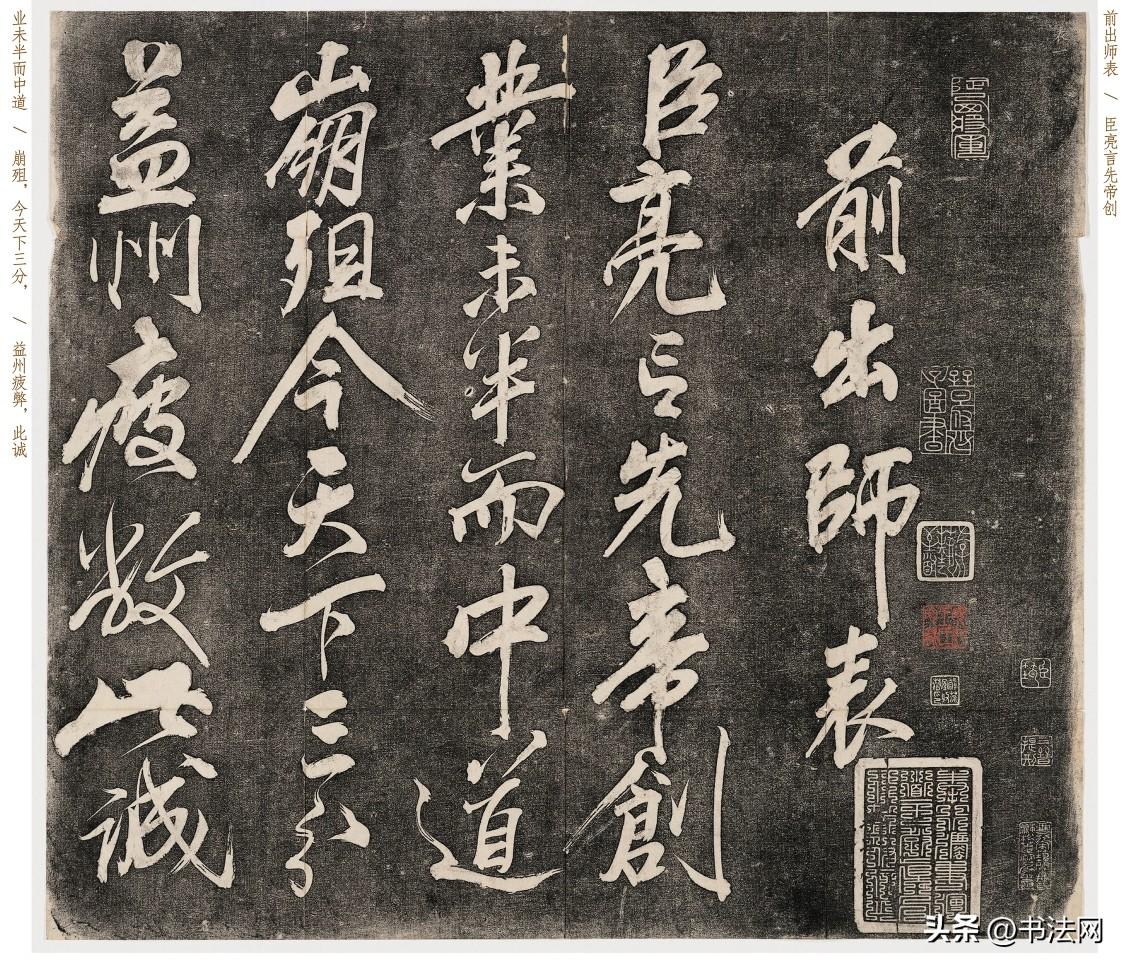 前出师表 / 臣亮言先帝创
前出師表
臣亮言先帝創
業未半而中道
崩殂今天下三分
益州疲敝此誠
业未半而中道 / 崩殂，今天下三分， / 益州疲弊，此诚
头条 @书法网